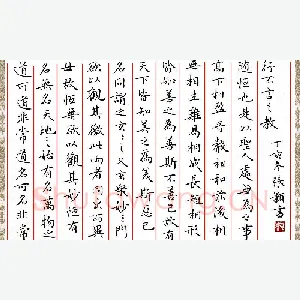 道可道非常道名可名非常
名無名天地之始有名萬物之
母故恒無欲以觀其妙恒有
欲以觀其徼此兩者同出而異
名同謂之玄之又玄眾妙之門
天下皆知美之為美斯惡已
皆知善之為善斯不善已故有
無相生難易相成長短相形
高下相盈音聲相和前後相
隨恒也是以聖人處無為之事
行不言之教
丁亥年 張穎書